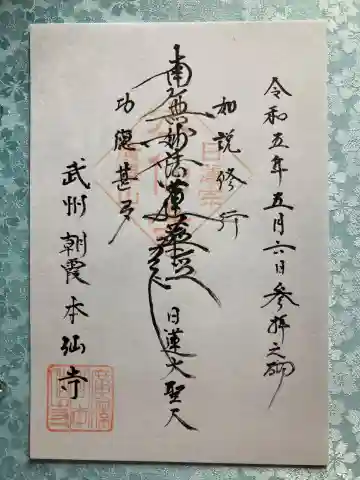 令和五年五月六日参拝之砌
如説修行
南無妙法蓮華経
日蓮大聖人
功徳甚多
武州朝霞本仙寺
日蓮宗